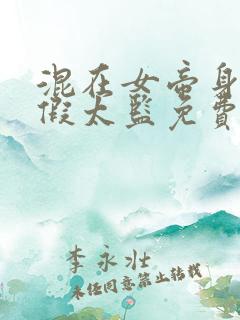 混在女帝身
假太监免費
李永壮
未经同意禁止转载